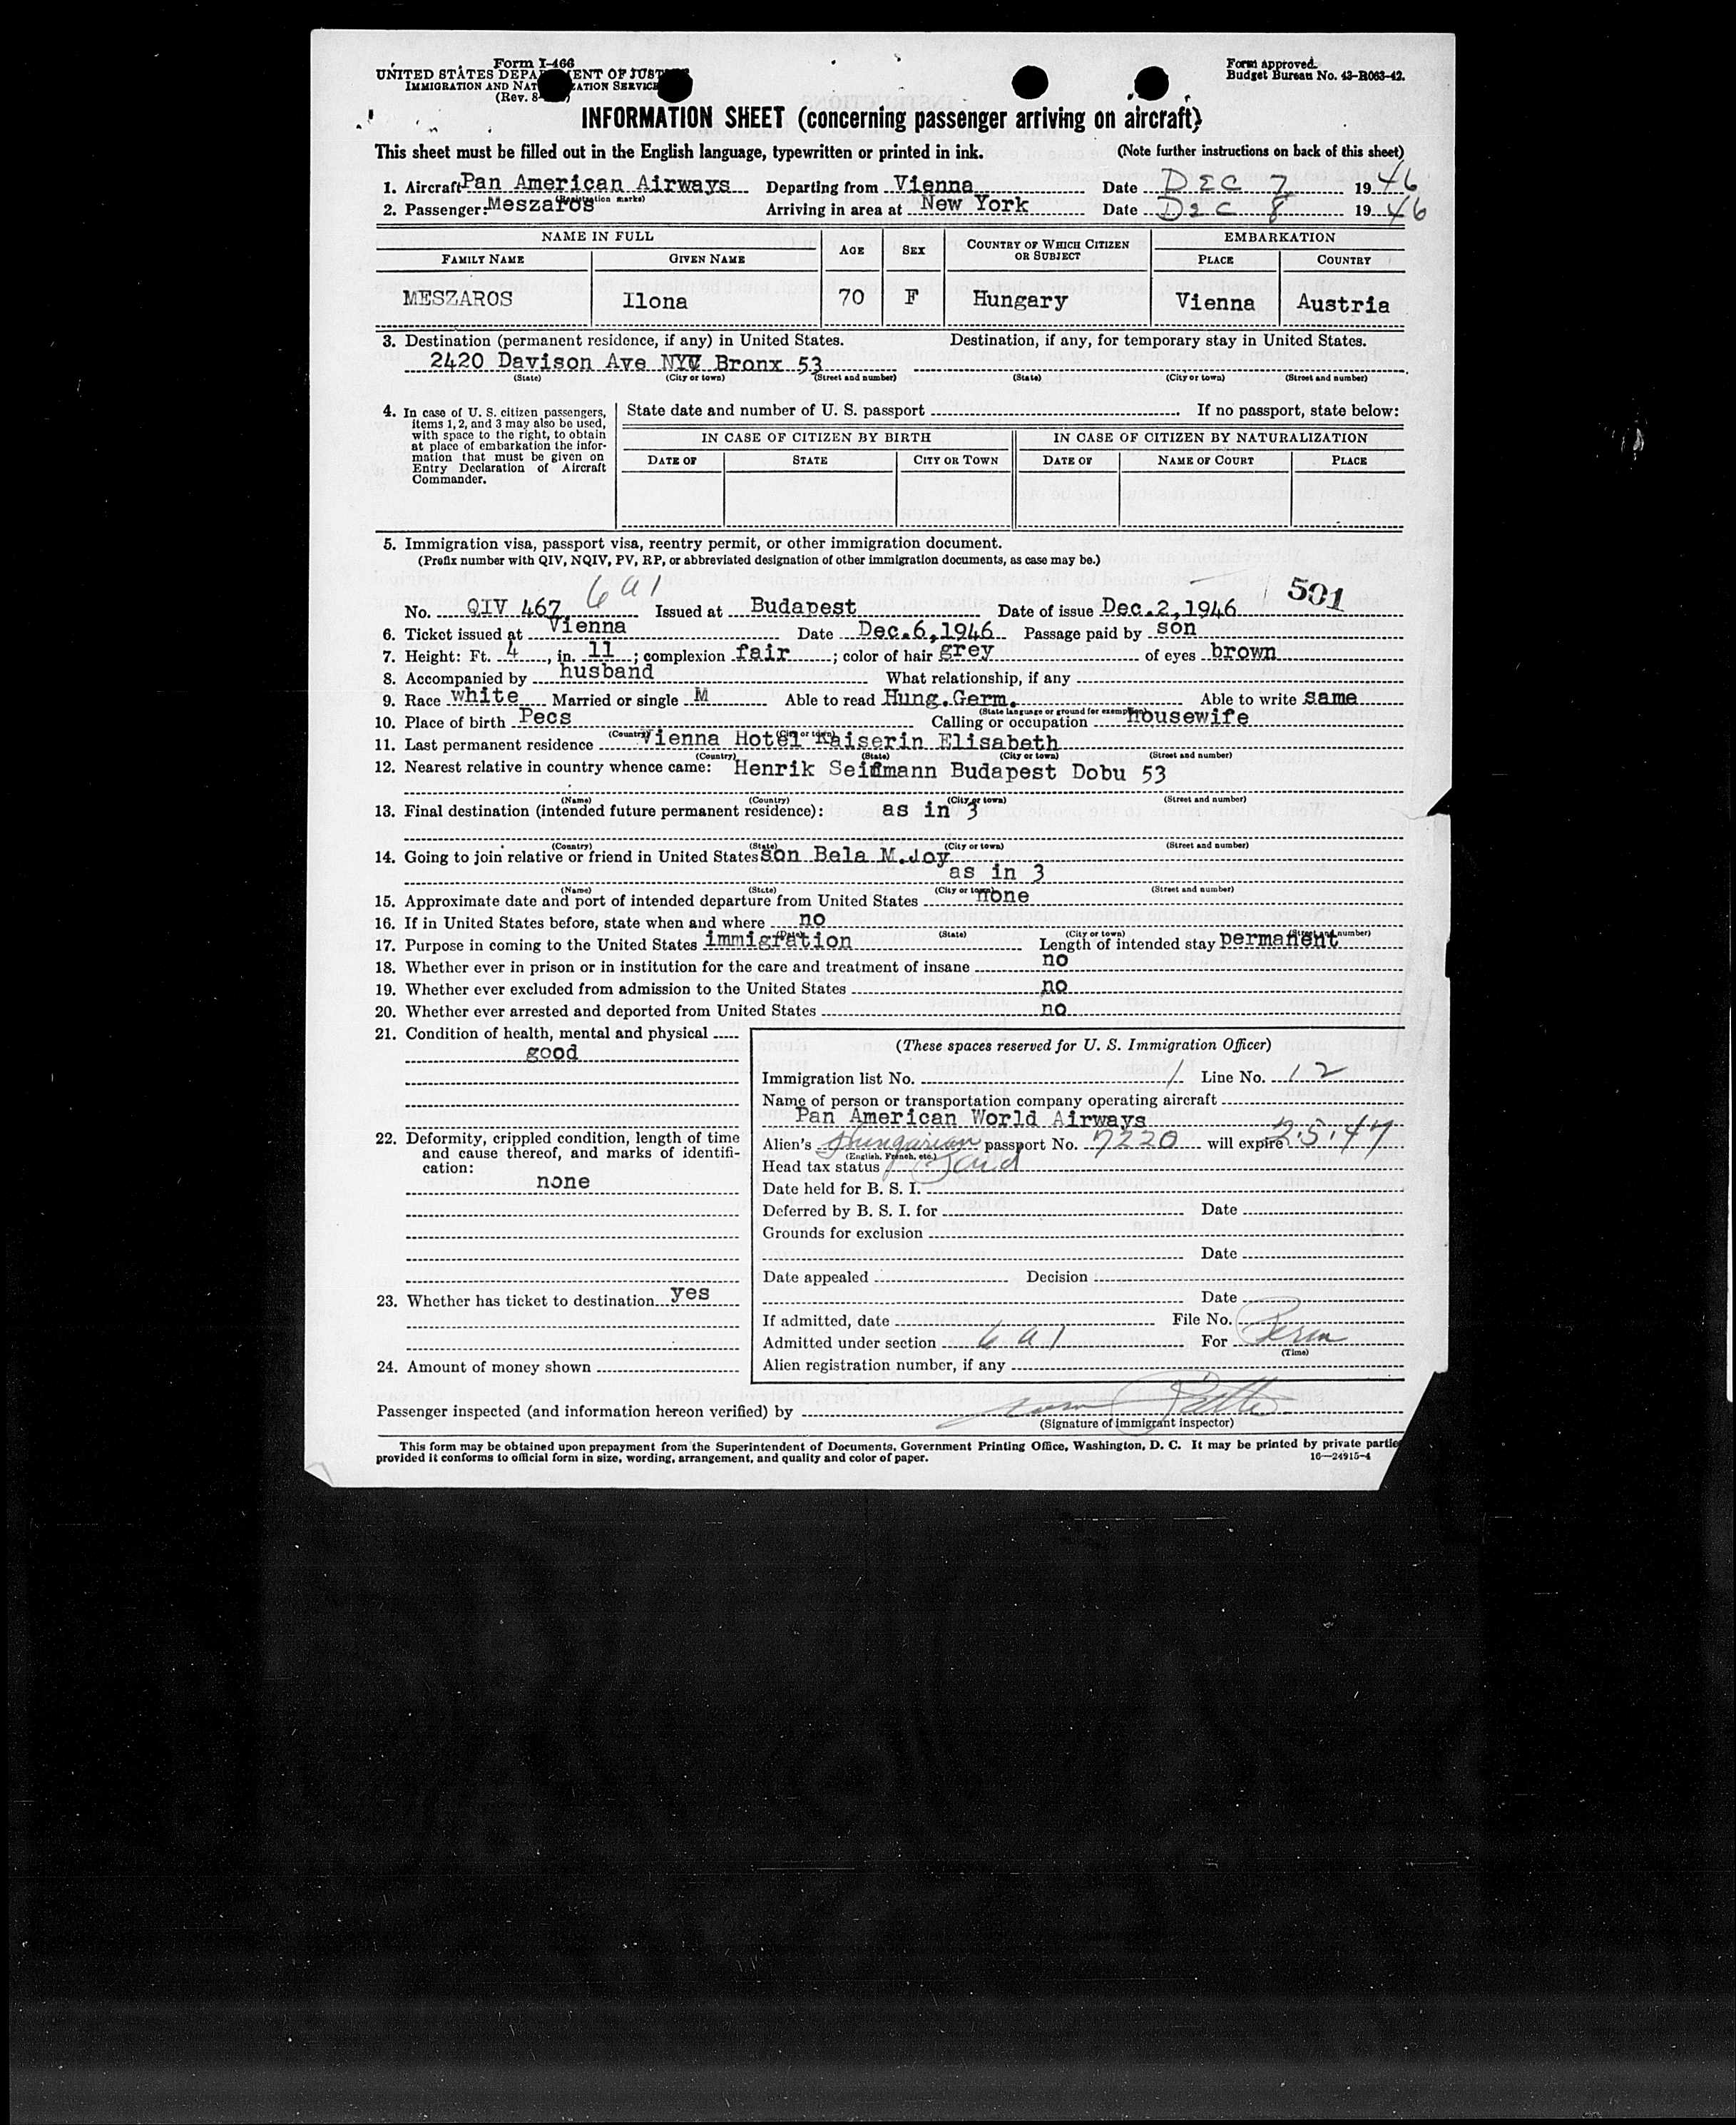 Form I-466
UNITED STATES DEPARTMENT OF JUSTICE
IMMIGRATION AND NATURALIZATION SERVICE
(Rev. 8-
Form approved.
Budget Bureau No. 43-R063-42.
INFORMATION SHEET (concerning passenger arriving on aircraft)
This sheet must be filled out in the English language, typewritten or printed in ink. (Note further instructions on back of this sheet)
1. Aircraft Pan American Airways Departing from Vienna Date DEC 7 1946
(Registration marks)
2. Passenger: Meszaros Arriving in area at New York Date Dec 8 1946
NAME IN FULL AGE SEX COUNTRY OF WHICH CITIZEN OR SUBJECT EMBARKATION
FAMILY NAME GIVEN NAME PLACE COUNTRY
MESZAROS Ilona 70 F Hungary Vienna Austria
3. Destination (permanent residence, if any) in United States. Destination, if any, for temporary stay in United States.
2420 Davison Ave NYC Bronx 53
(State) (City or town) (Street and number) (State) (City or town) (Street and number)
4. In case of U. S. citizen passengers, items 1, 2, and 3 may also be used, with space to the right, to obtain at place of embarkation the information that must be given on Entry Declaration of Aircraft Commander.
State date and number of U. S. passport . If no passport, state below:
IN CASE OF CITIZEN BY BIRTH IN CASE OF CITIZEN BY NATURALIZATION
DATE OF STATE CITY OR TOWN DATE OF NAME OF COURT PLACE
5. Immigration visa, passport visa, reentry permit, or other immigration document.
(Prefix number with QIV, NQIV, PV, RP, or abbreviated designation of other immigration documents, as case may be.)
6a1 501
No. QIV 467 Issued at Budapest Date of issue Dec.2,1946
6. Ticket issued at Vienna Date Dec.6,1946 Passage paid by son
7. Height: Ft. 4, in. 11; complexion fair; color of hair grey of eyes brown
8. Accompanied by husband What relationship, if any
9. Race white Married or single M Able to read Hung.Germ. Able to write same
(State language or ground for exemption)
10. Place of birth Pecs Calling or occupation housewife
(Country) (City or town)
11. Last permanent residence Vienna Hotel Kaiserin Elisabeth
(Country) (State) (City or town) (Street and number)
12. Nearest relative in country whence came: Henrik Seifmann Budapest Dobu 53
(Name) (Country) (City or town) (Street and number)
13. Final destination (intended future permanent residence): as in 3
(Country) (State) (City or town) (Street and number)
14. Going to join relative or friend in United States son Bela M.Joy
as in 3
(Name) (State) (City or town) (Street and number)
15. Approximate date and port of intended departure from United States none
16. If in United States before, state when and where no
(Date) (State) (City or town) (Street and number)
17. Purpose in coming to the United States immigration Length of intended stay permanent
18. Whether ever in prison or in institution for the care and treatment of insane no
19. Whether ever excluded from admission to the United States no
20. Whether ever arrested and deported from United States no
21. Condition of health, mental and physical
good
22. Deformity, crippled condition, length of time and cause thereof, and marks of identification:
none
23. Whether has ticket to destination yes
24. Amount of money shown
(These spaces reserved for U. S. Immigration Officer)
Immigration list No. 1 Line No. 12
Name of person or transportation company operating aircraft
Pan American World Airways
Alien's Hungarian passport No. 7220 will expire 2.5.47
(English, French, etc.)
Head tax status Paid
Date held for B. S. I.
Deferred by B. S. I. for Date
Grounds for exclusion
Date
Date appealed Decision
Date
If admitted, date File No.
Admitted under section 6a1 For Perm
(Time)
Alien registration number, if any
Passenger inspected (and information hereon verified) by
(Signature of immigrant inspector)
This form may be obtained upon prepayment from the Superintendent of Documents, Government Printing Office, Washington, D. C. It may be printed by private partie
provided it conforms to official form in size, wording, arrangement, and quality and color of paper. 16—24915-4